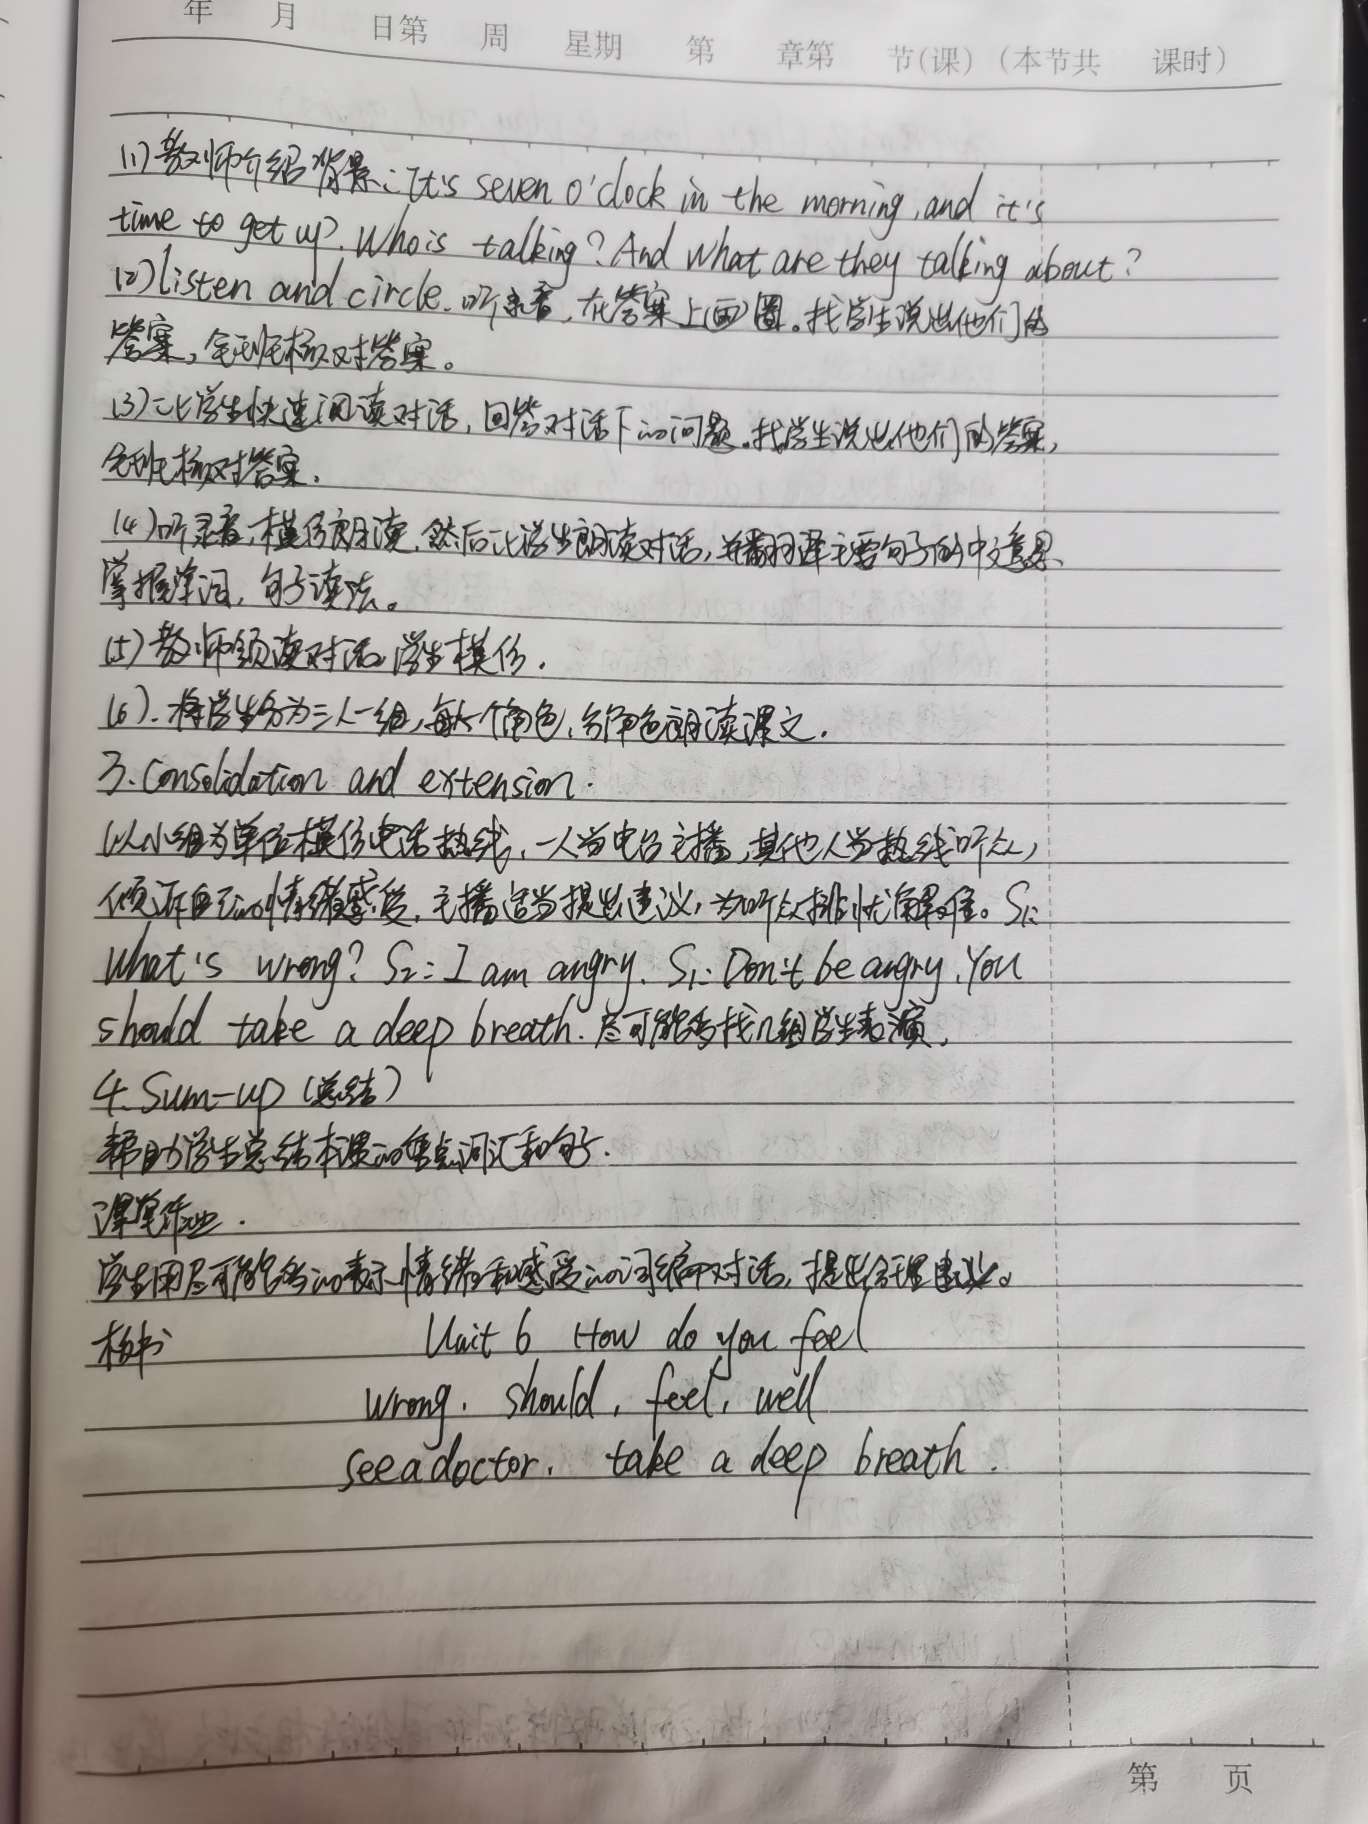 年 月 日第 周 星期 第 章第 节(课) (本节共 课时)
(1)教师介绍背景:It's seven o'clock in the morning, and it's
time to get up. Who is talking? And what are they talking about?
(2)listen and circle.听录音,在答案上画圈。找学生说出他们的
答案,全班核对答案。
(3)让学生快速阅读对话,回答对话下的问题.找学生说出他们的答案,
全班核对答案.
(4)听录音,模仿朗读,然后让学生朗读对话,并翻译主要句子的中文意思,
掌握单词,句子读法。
(5)教师领读对话,学生模仿.
(6).将学生分为三人一组,每人一个角色,分角色朗读课文.
3.Consolidation and extension.
以小组为单位模仿电话热线,一人当电台主播,其他人当热线听众,
倾诉自己的情绪感受,主播适当提出建议,为听众排忧解难。S1:
What's wrong? S2: I am angry. S1: Don't be angry. You
should take a deep breath.尽可能多找几组学生表演,
4.Sum-up (总结)
帮助学生总结本课的重点词汇和句子.
课堂作业.
学生用尽可能多的表示情绪和感受的词编对话,提出合理建议。
板书 Unit 6 How do you feel
wrong. should, feel, well
see a doctor. take a deep breath.
第 页